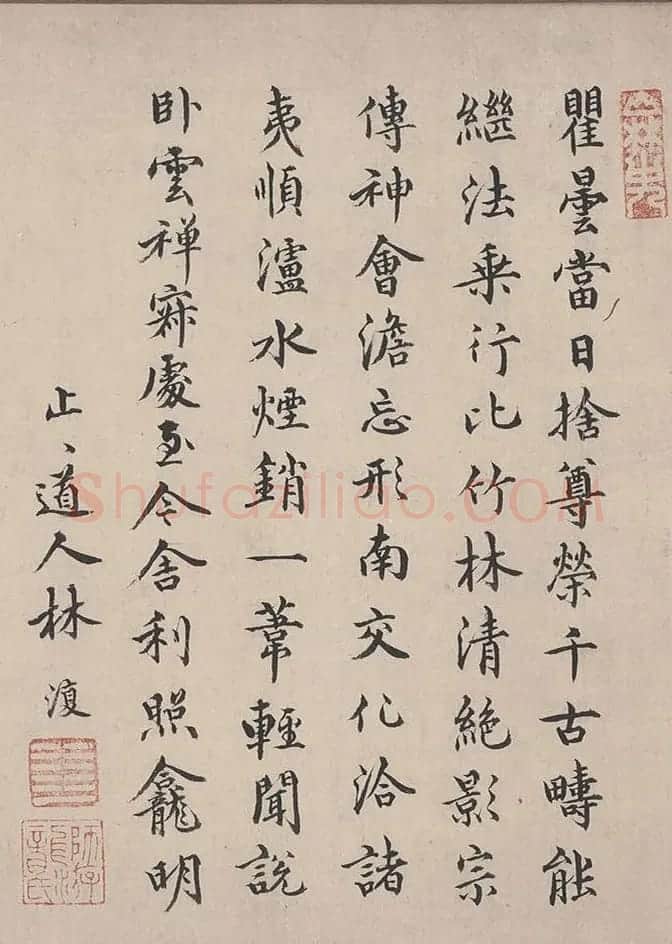 瞿曇當日捨尊榮千古疇能
繼法乘行比竹林清絶影宗
傳神會澹忘形南交化洽諸
夷順瀘水煙銷一葦輕聞説
卧雲禪寂處至今舍利照龕明
止〻道人林復
Shufaziliao.COM